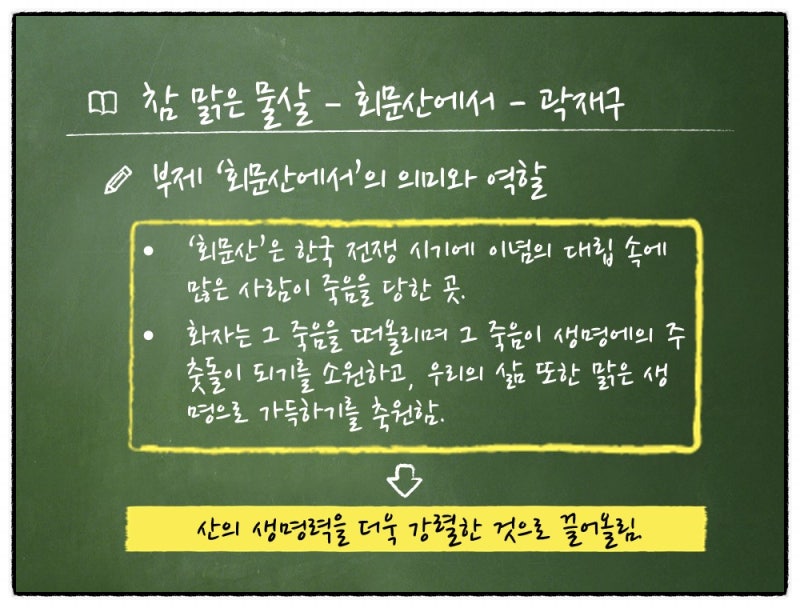 참 맑은 물살 – 회문산에서 – 곽재구
부제 ‘회문산에서’의 의미와 역할
• ‘회문산’은 한국 전쟁 시기에 이념의 대립 속에
많은 사람이 죽음을 당한 곳.
• 화자는 그 죽음을 떠올리며 그 죽음이 생명에의 주
춧돌이 되기를 소원하고, 우리의 삶 또한 맑은 생
명으로 가득하기를 축원함.
산의 생명력을 더욱 강렬한 것으로 끌어올림.